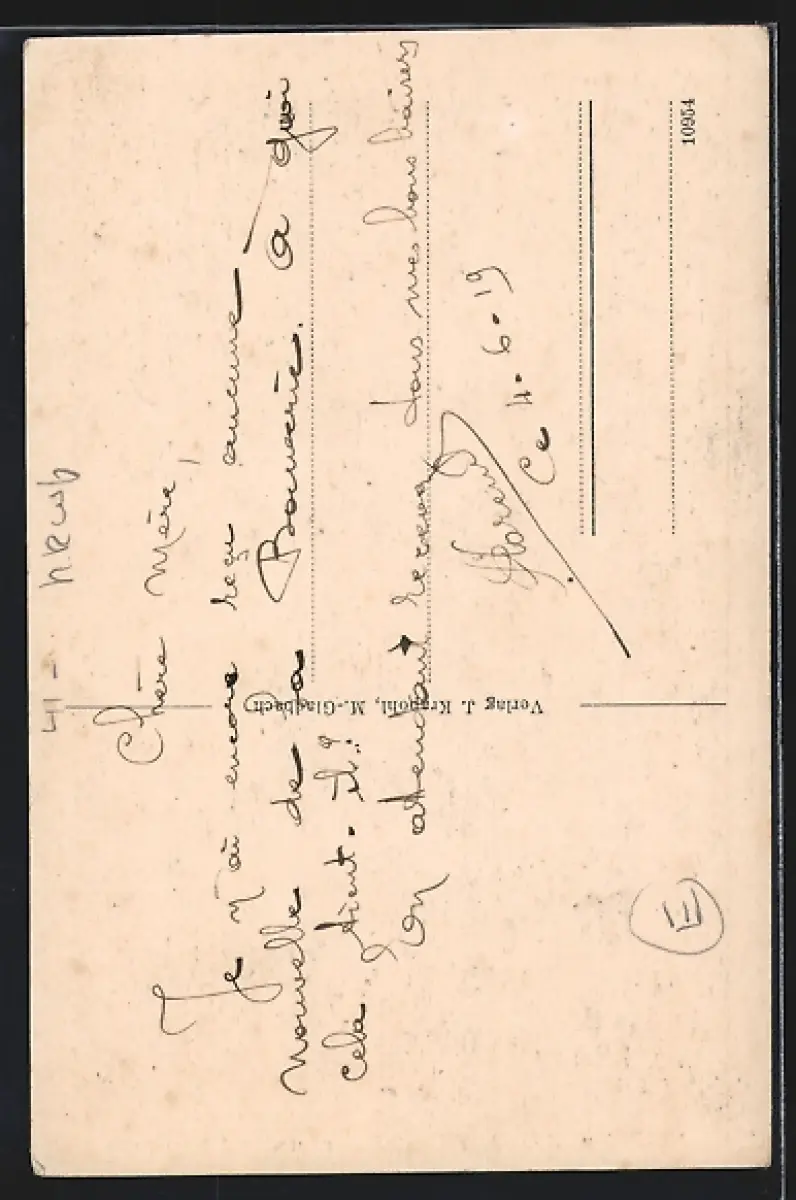 41 -
Chère mère,
Je n'ai encore reçu aucune
nouvelle de la Bouverie. à quoi
cela tient-il?
En attendant recevez tous mes bons baisers
Ce 4.6.19
Verlag J. Krapohl, M.-Gladbach
10954
E